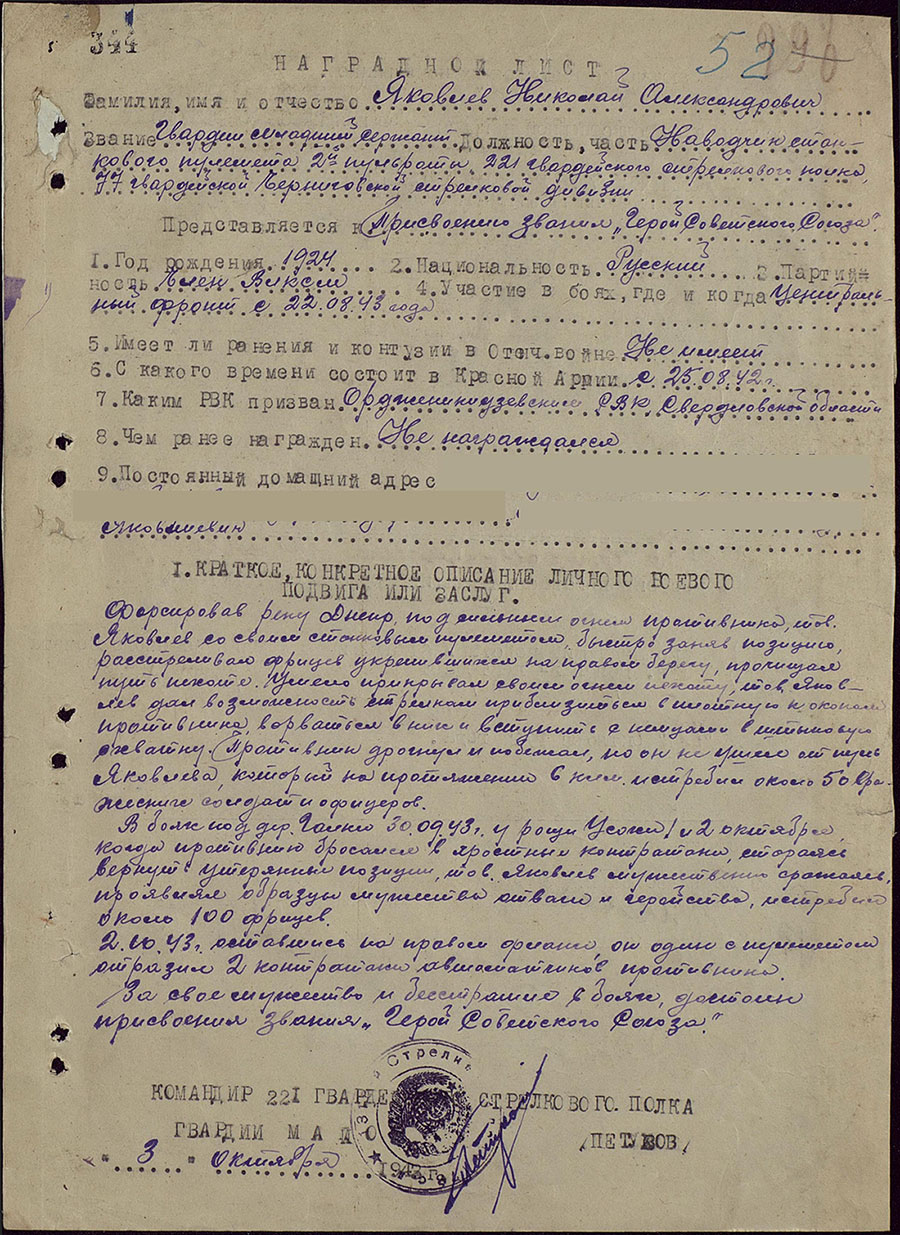 344
52
НАГРАДНОЙ ЛИСТ
Фамилия, имя и отчество Яковлев Николай Александрович
Звание Гвардии младший сержант Должность, часть Наводчик стан-
кового пулемета 2й пульроты, 221 гвардейского стрелкового полка,
77 гвардейской Черниговской стрелковой дивизии
Представляется к Присвоению звания „Герой Советского Союза".
1. Год рождения 1924 2. Национальность Русский 3. Партий-
ность Член ВЛКСМ 4. Участие в боях, где и когда Централь-
ный фронт с 22.08.43 года
5. Имеет ли ранения и контузии в Отеч. войне Не имеет
6. С какого времени состоит в Красной Армии с 25.08.42 г.
7. Каким РВК призван Орджоникидзевским РВК, Свердловской области
8. Чем ранее награжден Не награждался
9. Постоянный домашний адрес
I. КРАТКОЕ, КОНКРЕТНОЕ ОПИСАНИЕ ЛИЧНОГО БОЕВОГО
ПОДВИГА ИЛИ ЗАСЛУГ.
Форсировав реку Днепр, под сильным огнем противника, тов.
Яковлев со своим станковым пулеметом, быстро заняв позицию,
расстреливал фрицев укрепившихся на правом берегу, прочищал
путь пехоте. Умело прикрывал своим огнем пехоту, тов. Яков-
лев дал возможность стрелкам приблизиться вплотную к окопам
противника, ворваться в них и вступить с немцами в штыковую
схватку. Противник дрогнул и побежал, но он не ушел от пуль
Яковлева, который на протяжении 8 клм. истребил около 50 вра-
жеских солдат и офицеров.
В боях под дер. Галки 30.09.43 г. у рощи 1 и 2 октября,
когда противник бросался в яростные контратаки, стараясь
вернуть утерянные позиции, тов. Яковлев мужественно сражался,
проявлял образцы мужества отваги и геройства, истребил
около 100 фрицев.
2.10.43 г. оставшись на правом фланге, он один с пулеметом
отразил 2 контратаки автоматчиков противника.
За свое мужество и бесстрашие в боях, достоин
присвоения звания „Герой Советского Союза."
КОМАНДИР 221 ГВАРДЕ СТРЕЛКОВОГО ПОЛКА
ГВАРДИИ МАЙО /ПЕТУХОВ/
" 3 " Октября 1943 г.